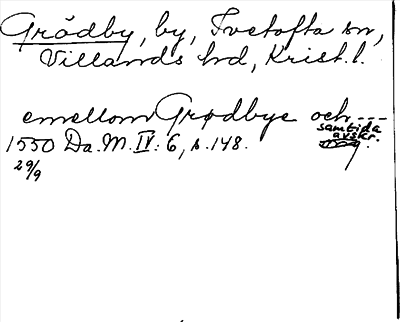 Grödby, by, Ivetofta sn,
Villands hd, Krist. l.
emellom Grødbye och ---
samtida
avskr.
1550 Da. M. IV: 6, s. 148.
29/9